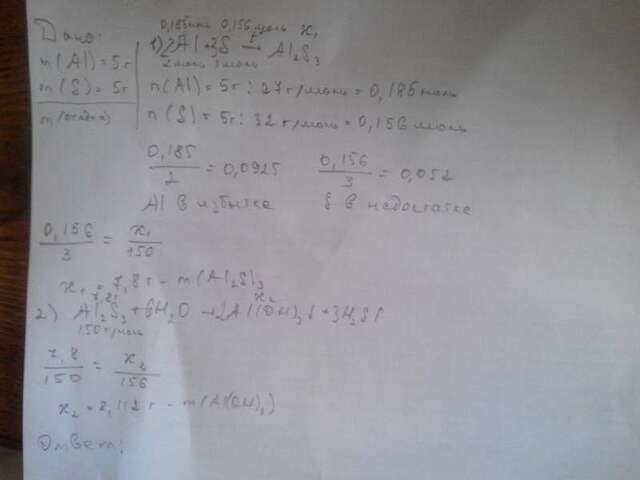 Дано:
m(Al) = 5 г
m(S) = 5 г
m(осадка)
0,185моль 0,156моль x₁
1) 2Al + 3S → Al₂S₃
2моль 3моль
n(Al) = 5г : 27 г/моль = 0,185 моль
n(S) = 5г : 32 г/моль = 0,156 моль
0,185/2 = 0,0925 0,156/3 = 0,052
Al в избытке S в недостатке
0,156/3 = x₁/150
x₁ = 7,8 г - m(Al₂S)₃
7,8г x₂
2) Al₂S₃ + 6H₂O → 2Al(OH)₃↓ + 3H₂S↑
150г/моль
7,8/150 = x₂/156
x₂ = 8,112 г - m(Al(OH)₃)
Ответ: